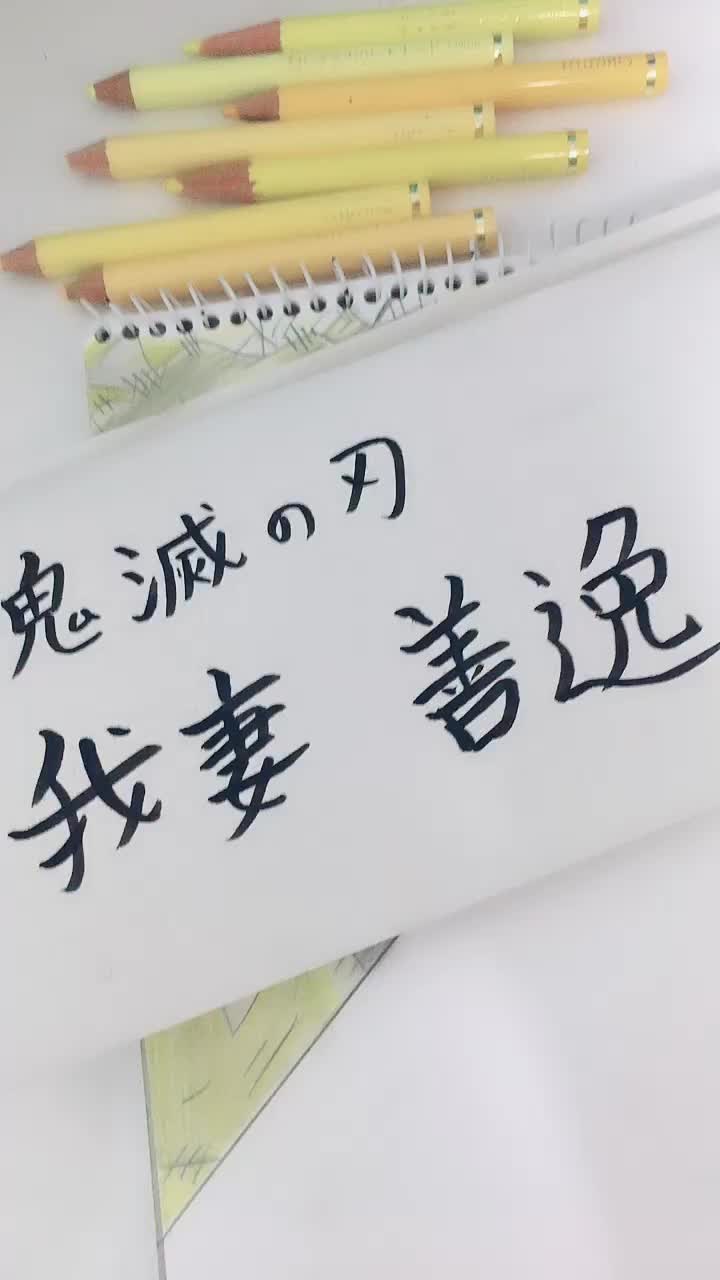 鬼滅の刃
我妻 善逸